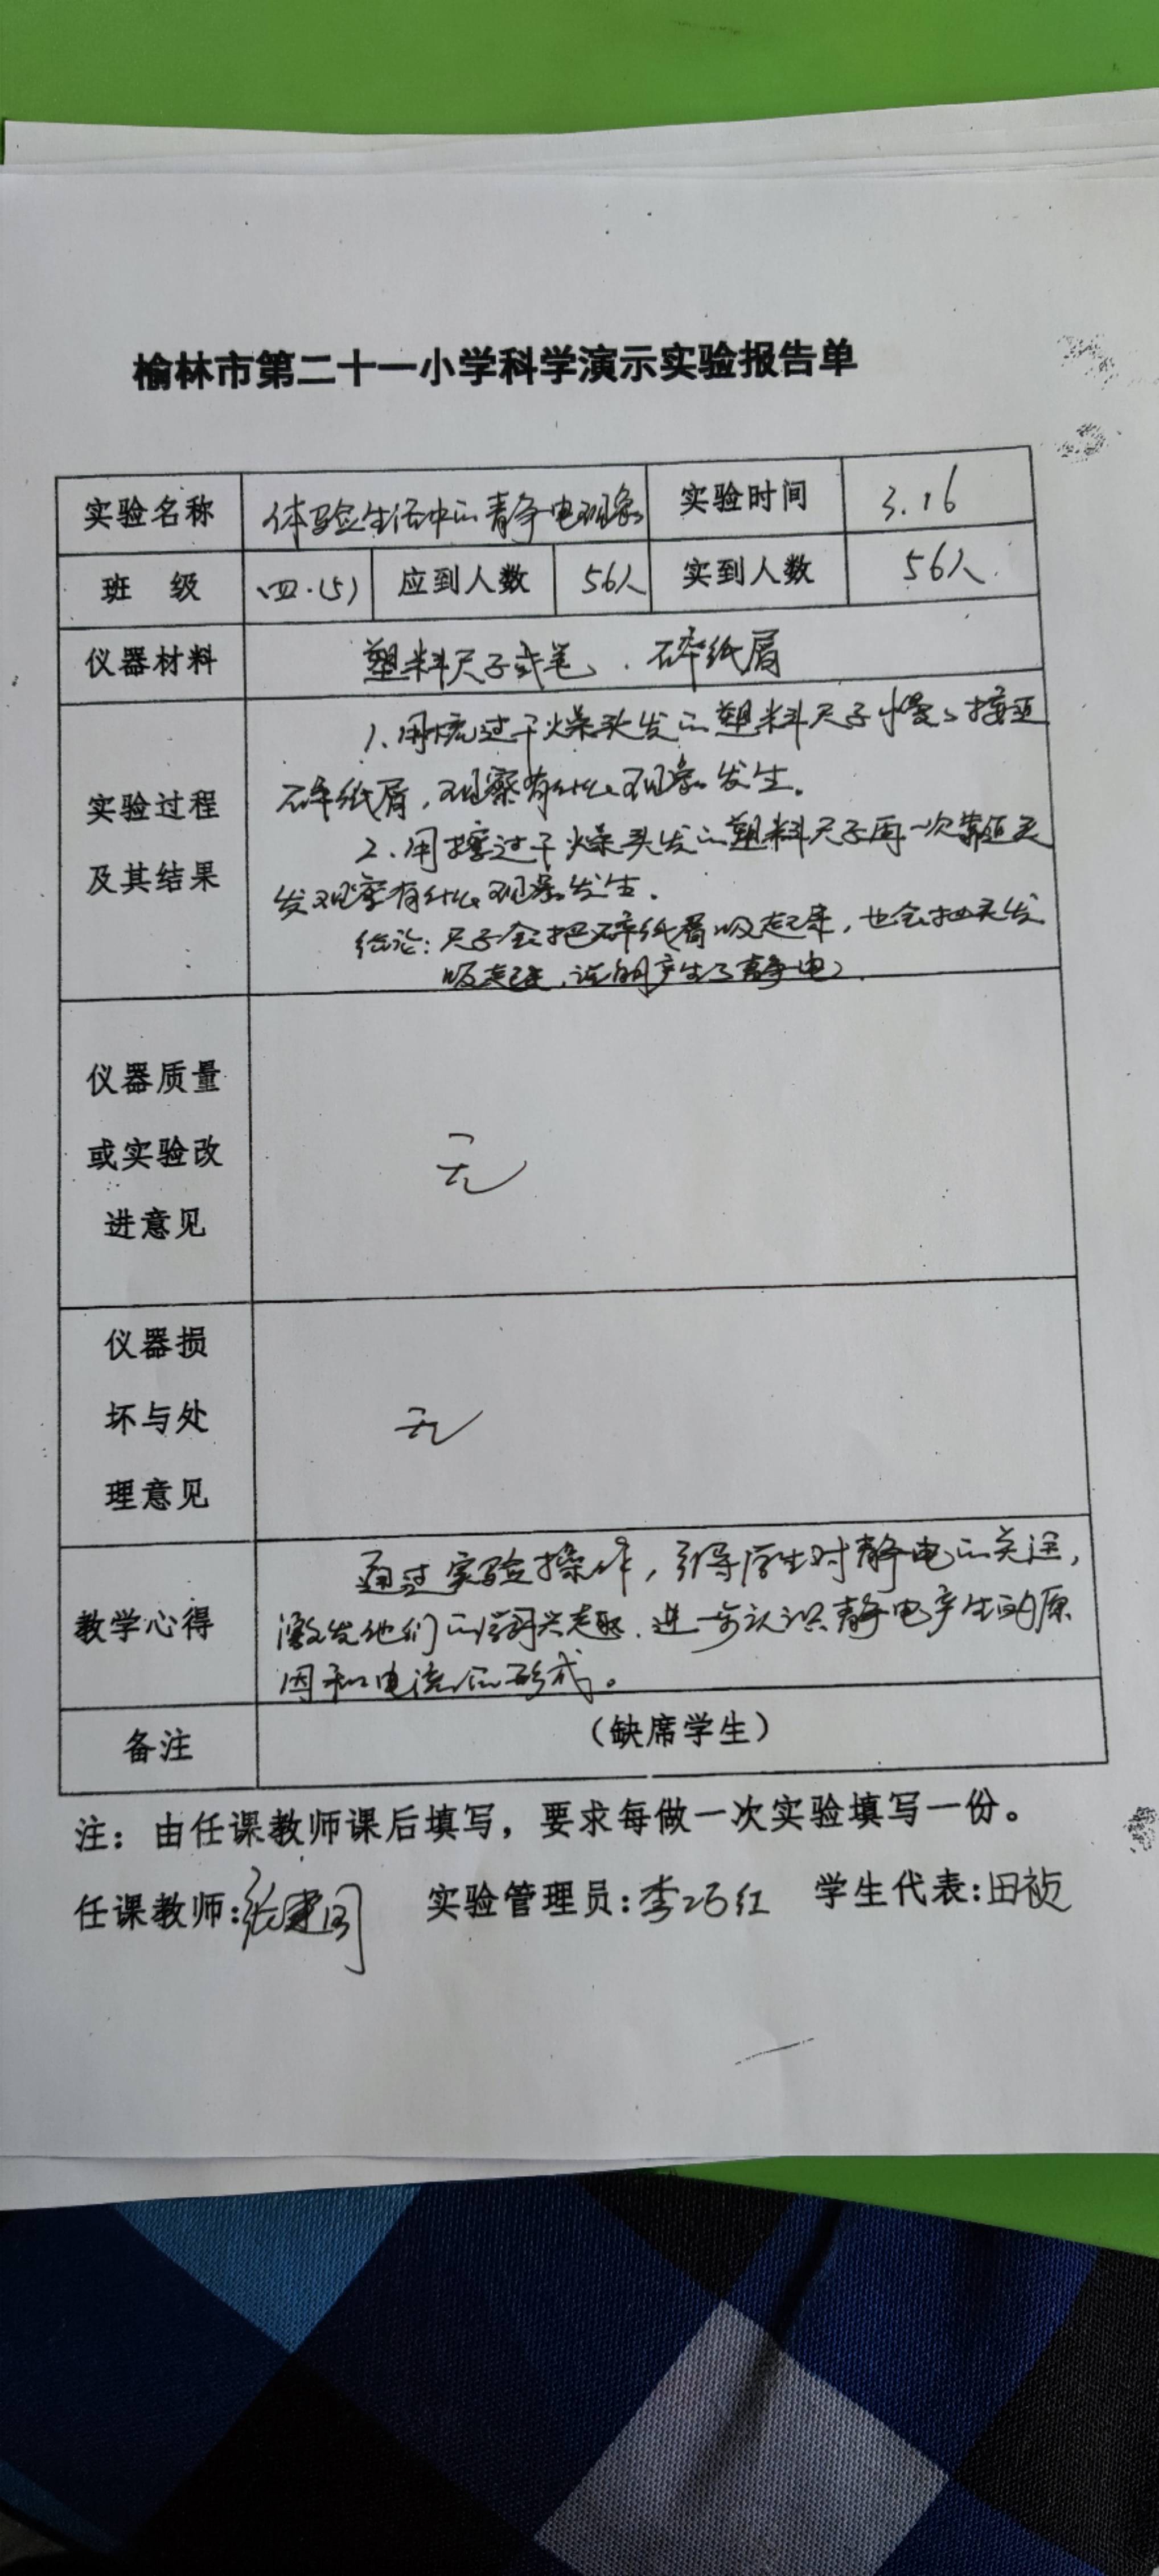 榆林市第二十一小学科学演示实验报告单
实验名称 体验生活中的静电现象 实验时间 3.16
班 级 四.(5) 应到人数 56人 实到人数 56人.
仪器材料 塑料尺子或笔、碎纸屑
实验过程
及其结果
1、用梳过干燥头发的塑料尺子慢慢接近
碎纸屑,观察有什么现象发生。
2、用擦过干燥头发的塑料尺子再一次靠近头
发观察有什么现象发生.
结论:尺子会把碎纸屑吸起来,也会把头发
吸起来,说明产生了静电.
仪器质量
或实验改
进意见
无
仪器损
坏与处
理意见
无
教学心得
通过实验操作,引导学生对静电的关注,
激发他们的学习兴趣.进一步认识静电产生的原
因和电流的形成。
备注 (缺席学生)
注:由任课教师课后填写,要求每做一次实验填写一份。
任课教师:张建 实验管理员:李巧红 学生代表:田祯